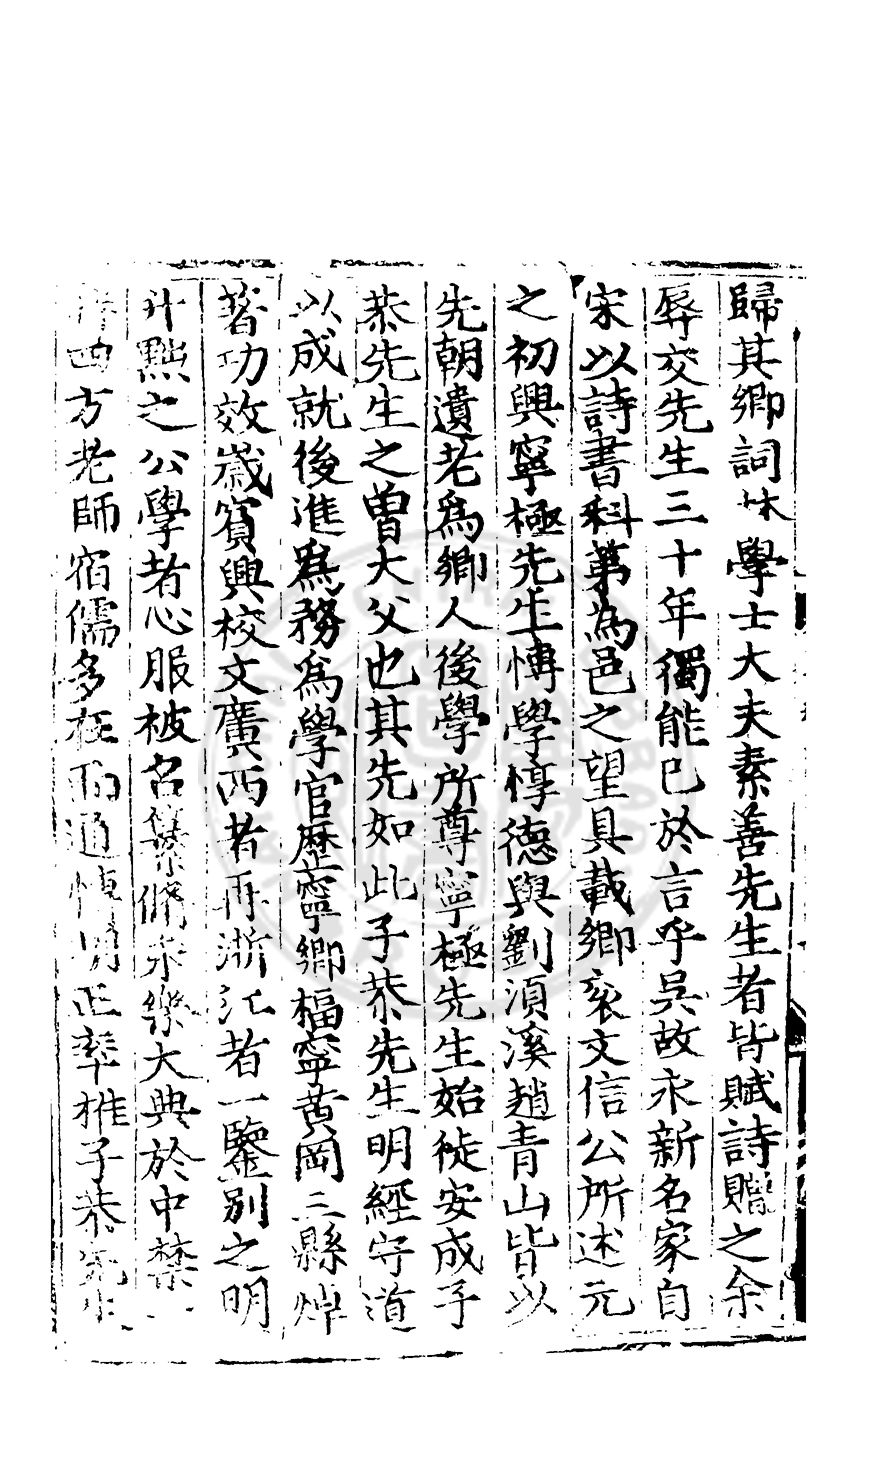 歸其鄉詞林學士大夫素善先生者皆賦詩贈之余
辱交先生三十年獨能已於言乎吳故永新名家自
宋以詩書科第為邑之望具載鄉衮文信公所述元
之初興寧極先生慱學惇德與劉湏溪趙青山皆以
先朝遺老爲鄉人後學所尊寧極先生始徙安成子
恭先生之曾大父也其先如此子恭先生明經守道
以成就後進爲務爲學官歷寧鄉福寧黄岡三縣焯
著功效嵗賓興校文廣西者再浙江者一鑒別之明
升黜之公學者心服被召纂脩永樂大典於中禁一
時四方老師宿儒多在而通慱明正率推子恭先生